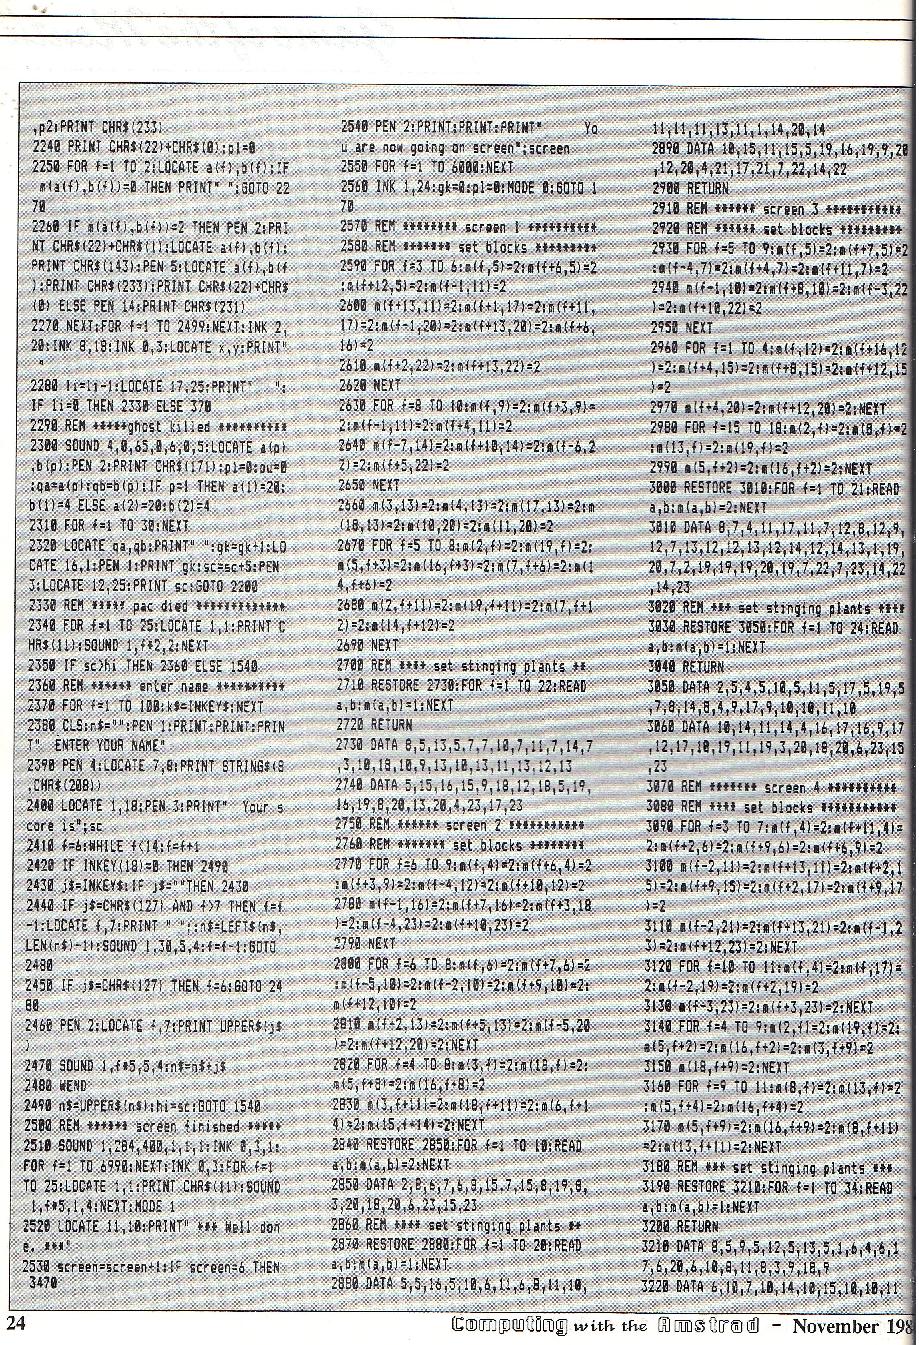 ,p2;PRINT CHR$(233)
2240 PRINT CHR$(22)+CHR$(0);:pl=0
2250 FOR f=1 TO 2:LOCATE a(f),b(f):IF
m(a(f),b(f))=0 THEN PRINT" ";:GOTO 22
70
2260 IF m(a(f),b(f))=2 THEN PEN 2:PRI
NT CHR$(22)+CHR$(1):LOCATE a(f),b(f):
PRINT CHR$(143):PEN 5:LOCATE a(f),b(f
):PRINT CHR$(233);:PRINT CHR$(22)+CHR$
(0) ELSE PEN 14:PRINT CHR$(231)
2270 NEXT:FOR f=1 TO 2499:NEXT:INK 2,
20:INK 8,18:INK 0,3:LOCATE x,y:PRINT"
"
2280 li=li-1:LOCATE 17,25:PRINT"   ";:
IF li=0 THEN 2330 ELSE 370
2290 REM *****ghost killed **********
2300 SOUND 4,0,65,0,6,0,5:LOCATE a(p)
,b(p):PEN 2:PRINT CHR$(171);:pl=0:ou=0
:qa=a(p):qb=b(p):IF p=1 THEN a(1)=20:
b(1)=4 ELSE a(2)=20:b(2)=4
2310 FOR f=1 TO 30:NEXT
2320 LOCATE qa,qb:PRINT" ":gk=gk+1:LO
CATE 16,1:PEN 1:PRINT gk:sc=sc+5:PEN
3:LOCATE 12,25:PRINT sc:GOTO 2200
2330 REM ***** pac died *************
2340 FOR f=1 TO 25:LOCATE 1,1:PRINT C
HR$(11):SOUND 1,f*2,2:NEXT
2350 IF sc>hi THEN 2360 ELSE 1540
2360 REM ****** enter name **********
2370 FOR f=1 TO 100:k$=INKEY$:NEXT
2380 CLS:n$="":PEN 1:PRINT:PRINT:PRIN
T"  ENTER YOUR NAME"
2390 PEN 4:LOCATE 7,8:PRINT STRING$(8
,CHR$(208))
2400 LOCATE 1,18:PEN 3:PRINT"  Your s
core is";sc
2410 f=6:WHILE f<14:f=f+1
2420 IF INKEY(18)=0 THEN 2490
2430 j$=INKEY$:IF j$=""THEN 2430
2440 IF j$=CHR$(127) AND f>7 THEN f=f
-1:LOCATE f,7:PRINT " ";:n$=LEFT$(n$,
LEN(n$)-1):SOUND 1,30,5,4:f=f-1:GOTO
2480
2450 IF j$=CHR$(127) THEN f=6:GOTO 24
80
2460 PEN 2:LOCATE f,7:PRINT UPPER$(j$
)
2470 SOUND 1,f*5,5,4:n$=n$+j$
2480 WEND
2490 n$=UPPER$(n$):hi=sc:GOTO 1540
2500 REM ****** screen finished *****
2510 SOUND 1,284,400,1,1,1:INK 0,3,1:
FOR f=1 TO 6990:NEXT:INK 0,3:FOR f=1
TO 25:LOCATE 1,1:PRINT CHR$(11):SOUND
1,f*5,1,4:NEXT:MODE 1
2520 LOCATE 11,10:PRINT" *** Well don
e. ***"
2530 screen=screen+1:IF screen=6 THEN
3470
2540 PEN 2:PRINT:PRINT:PRINT"      Yo
u are now going on screen";screen
2550 FOR f=1 TO 6000:NEXT
2560 INK 1,24:gk=0:pl=0:MODE 0:GOTO 1
70
2570 REM ******** screen 1 **********
2580 REM ******* set blocks *********
2590 FOR f=3 TO 6:m(f,5)=2:m(f+6,5)=2
:m(f+12,5)=2:m(f-1,11)=2
2600 m(f+13,11)=2:m(f+1,17)=2:m(f+11,
17)=2:m(f-1,20)=2:m(f+13,20)=2:m(f+6,
16)=2
2610 m(f+2,22)=2:m(f+13,22)=2
2620 NEXT
2630 FOR f=8 TO 10:m(f,9)=2:m(f+3,9)=
2:m(f-1,11)=2:m(f+4,11)=2
2640 m(f-7,14)=2:m(f+10,14)=2:m(f-6,2
2)=2:m(f+5,22)=2
2650 NEXT
2660 m(3,13)=2:m(4,13)=2:m(17,13)=2:m
(18,13)=2:m(10,20)=2:m(11,20)=2
2670 FOR f=5 TO 8:m(2,f)=2:m(19,f)=2:
m(5,f+3)=2:m(16,f+3)=2:m(7,f+6)=2:m(1
4,f+6)=2
2680 m(2,f+11)=2:m(19,f+11)=2:m(7,f+1
2)=2:m(14,f+12)=2
2690 NEXT
2700 REM **** set stinging plants **
2710 RESTORE 2730:FOR f=1 TO 22:READ
a,b:m(a,b)=1:NEXT
2720 RETURN
2730 DATA 8,5,13,5,7,7,10,7,11,7,14,7
,3,10,18,10,9,13,10,13,11,13,12,13
2740 DATA 5,15,16,15,9,18,12,18,5,19,
16,19,8,20,13,20,4,23,17,23
2750 REM ****** screen 2 ***********
2760 REM ****** set blocks ********
2770 FOR f=6 TO 9:m(f,4)=2:m(f+6,4)=2
:m(f+3,9)=2:m(f-4,12)=2:m(f+10,12)=2
2780 m(f-1,16)=2:m(f+7,16)=2:m(f+3,18
)=2:m(f-4,23)=2:m(f+10,23)=2
2790 NEXT
2800 FOR f=6 TO 8:m(f,6)=2:m(f+7,6)=2
:m(f-5,10)=2:m(f-2,10)=2:m(f+9,10)=2:
m(f+12,10)=2
2810 m(f+2,13)=2:m(f+5,13)=2:m(f-5,20
)=2:m(f+12,20)=2:NEXT
2820 FOR f=4 TO 8:m(3,f)=2:m(18,f)=2:
m(5,f+8)=2:m(16,f+8)=2
2830 m(3,f+11)=2:m(18,f+11)=2:m(6,f+1
4)=2:m(15,f+14)=2:NEXT
2840 RESTORE 2850:FOR f=1 TO 10:READ
a,b:m(a,b)=2:NEXT
2850 DATA 2,8,6,7,6,8,15,7,15,8,19,8,
3,20,18,20,6,23,15,23
2860 REM **** set stinging plants **
2870 RESTORE 2880:FOR f=1 TO 20:READ
a,b:m(a,b)=1:NEXT
2880 DATA 5,5,16,5,10,6,11,6,8,11,10,
11,11,11,13,11,1,14,20,14
2890 DATA 10,15,11,15,5,19,16,19,9,20
,12,20,4,21,17,21,7,22,14,22
2900 RETURN
2910 REM ****** screen 3 ***********
2920 REM ****** set blocks *********
2930 FOR f=5 TO 9:m(f,5)=2:m(f+7,5)=2
:m(f-4,7)=2:m(f+4,7)=2:m(f+11,7)=2
2940 m(f-1,10)=2:m(f+8,10)=2:m(f-3,22
)=2:m(f+10,22)=2
2950 NEXT
2960 FOR f=1 TO 4:m(f,12)=2:m(f+16,12
)=2:m(f+4,15)=2:m(f+8,15)=2:m(f+12,15
)=2
2970 m(f+4,20)=2:m(f+12,20)=2:NEXT
2980 FOR f=15 TO 18:m(2,f)=2:m(8,f)=2
:m(13,f)=2:m(19,f)=2
2990 m(5,f+2)=2:m(16,f+2)=2:NEXT
3000 RESTORE 3010:FOR f=1 TO 21:READ
a,b:m(a,b)=2:NEXT
3010 DATA 8,7,4,11,17,11,7,12,8,12,9,
12,7,13,12,12,13,12,14,12,14,13,1,19,
20,7,2,19,19,19,20,19,7,22,7,23,14,22
,14,23
3020 REM *** set stinging plants ****
3030 RESTORE 3050:FOR f=1 TO 24:READ
a,b:m(a,b)=1:NEXT
3040 RETURN
3050 DATA 2,5,4,5,10,5,11,5,17,5,19,5
,7,8,14,8,4,9,17,9,10,10,11,10
3060 DATA 10,14,11,14,4,16,17,16,9,17
,12,17,10,19,11,19,3,20,18,20,6,23,15
,23
3070 REM ******* screen 4 **********
3080 REM **** set blocks ***********
3090 FOR f=3 TO 7:m(f,4)=2:m(f+11,4)=
2:m(f+2,6)=2:m(f+9,6)=2:m(f+6,9)=2
3100 m(f-2,11)=2:m(f+13,11)=2:m(f+2,1
5)=2:m(f+9,15)=2:m(f+2,17)=2:m(f+9,17
)=2
3110 m(f-2,21)=2:m(f+13,21)=2:m(f-1,2
3)=2:m(f+12,23)=2:NEXT
3120 FOR f=10 TO 11:m(f,4)=2:m(f,17)=
2:m(f-2,19)=2:m(f+2,19)=2
3130 m(f-3,23)=2:m(f+3,23)=2:NEXT
3140 FOR f=4 TO 9:m(2,f)=2:m(19,f)=2:
m(5,f+2)=2:m(16,f+2)=2:m(3,f+9)=2
3150 m(18,f+9)=2:NEXT
3160 FOR f=9 TO 11:m(8,f)=2:m(13,f)=2
:m(5,f+4)=2:m(16,f+4)=2
3170 m(5,f+9)=2:m(16,f+9)=2:m(8,f+11)
=2:m(13,f+11)=2:NEXT
3180 REM *** set stinging plants ***
3190 RESTORE 3210:FOR f=1 TO 34:READ
a,b:m(a,b)=1:NEXT
3200 RETURN
3210 DATA 8,5,9,5,12,5,13,5,1,6,4,6,1
7,6,20,6,10,8,11,8,3,9,18,9
3220 DATA 6,10,7,10,14,10,15,10,10,11
24
Computing with the Amstrad - November 198